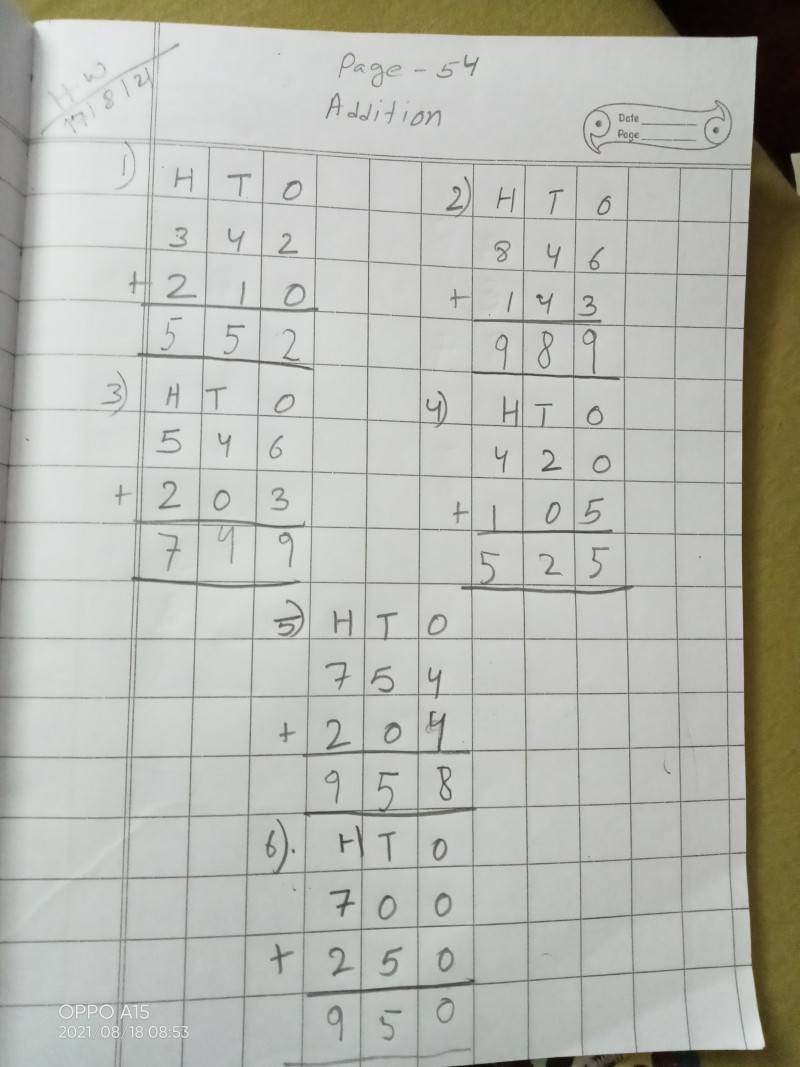 H.W
17/8/21
Page - 54
Addition
Date
Page
1) H T O
3 4 2
+ 2 1 0
5 5 2
2) H T O
8 4 6
+ 1 4 3
9 8 9
3) H T O
5 4 6
+ 2 0 3
7 4 9
4) H T O
4 2 0
+ 1 0 5
5 2 5
5) H T O
7 5 4
+ 2 0 4
9 5 8
6). H T O
7 0 0
+ 2 5 0
9 5 0
OPPO A15
2021/08/18 08:53